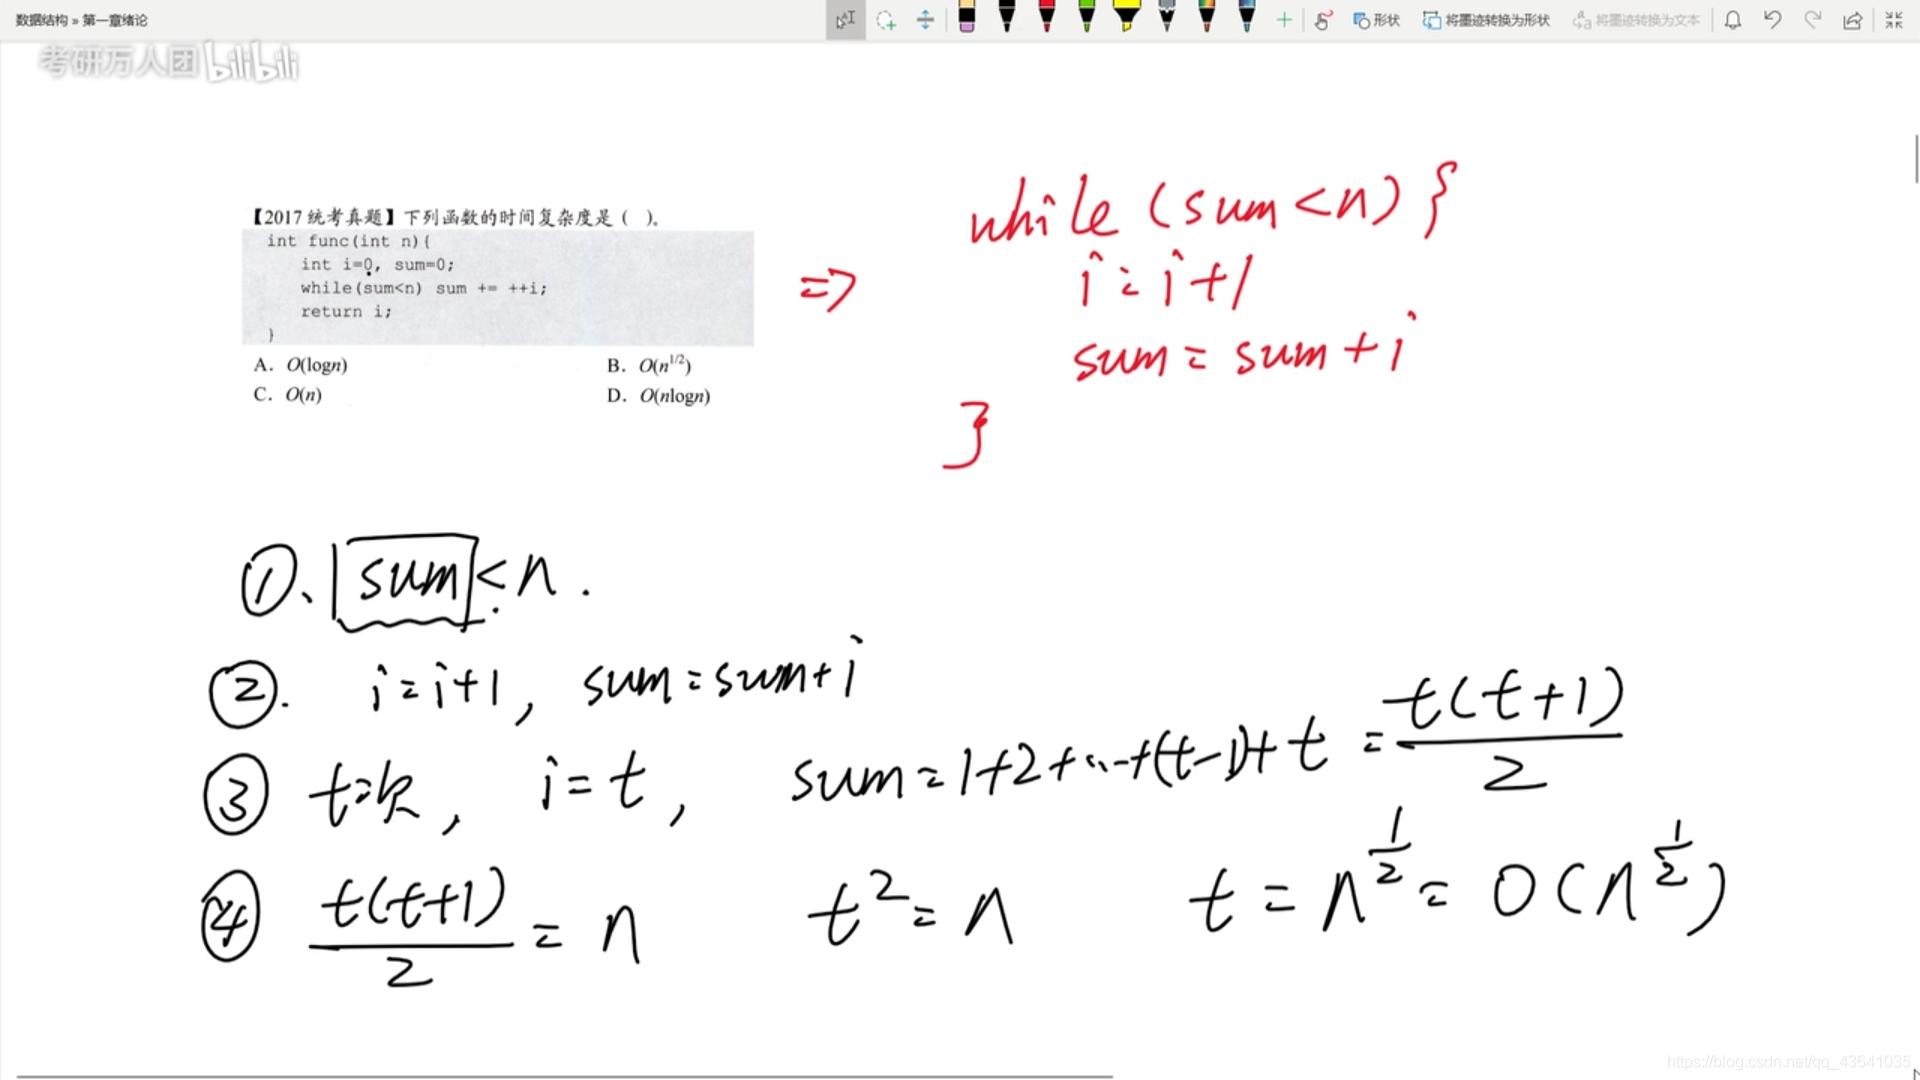 数据结构 » 第一章绪论
形状 将墨迹转换为形状 将墨迹转换为文本
考研万人团 bilibili
【2017统考真题】下列函数的时间复杂度是（ ）。
int func(int n){
int i=0, sum=0;
while(sum<n) sum += ++i;
return i;
}
A. O(logn) B. O(n^{1/2})
C. O(n) D. O(nlogn)
⇒
while (sum<n) {
i=i+1
sum = sum+i
}
①、sum < n .
②. i=i+1, sum=sum+i
③ t次, i=t, sum=1+2+…+(t-1)+t = t(t+1)/2
④ t(t+1)/2 = n t²=n t = n^{1/2} = O(n^{1/2})
https://blog.csdn.net/qq_43641035